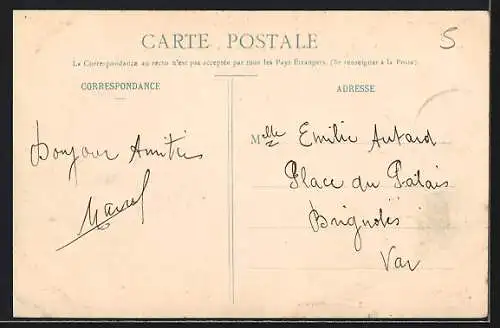 CARTE POSTALE
5
La Correspondance au recto n'est pas acceptée par tous les Pays Étrangers. (Se renseigner à la Poste).
CORRESPONDANCE
ADRESSE
Bonjour Amitiés
Marcel
Melle Emilie Autard
Place du Palais
Brignoles
Var